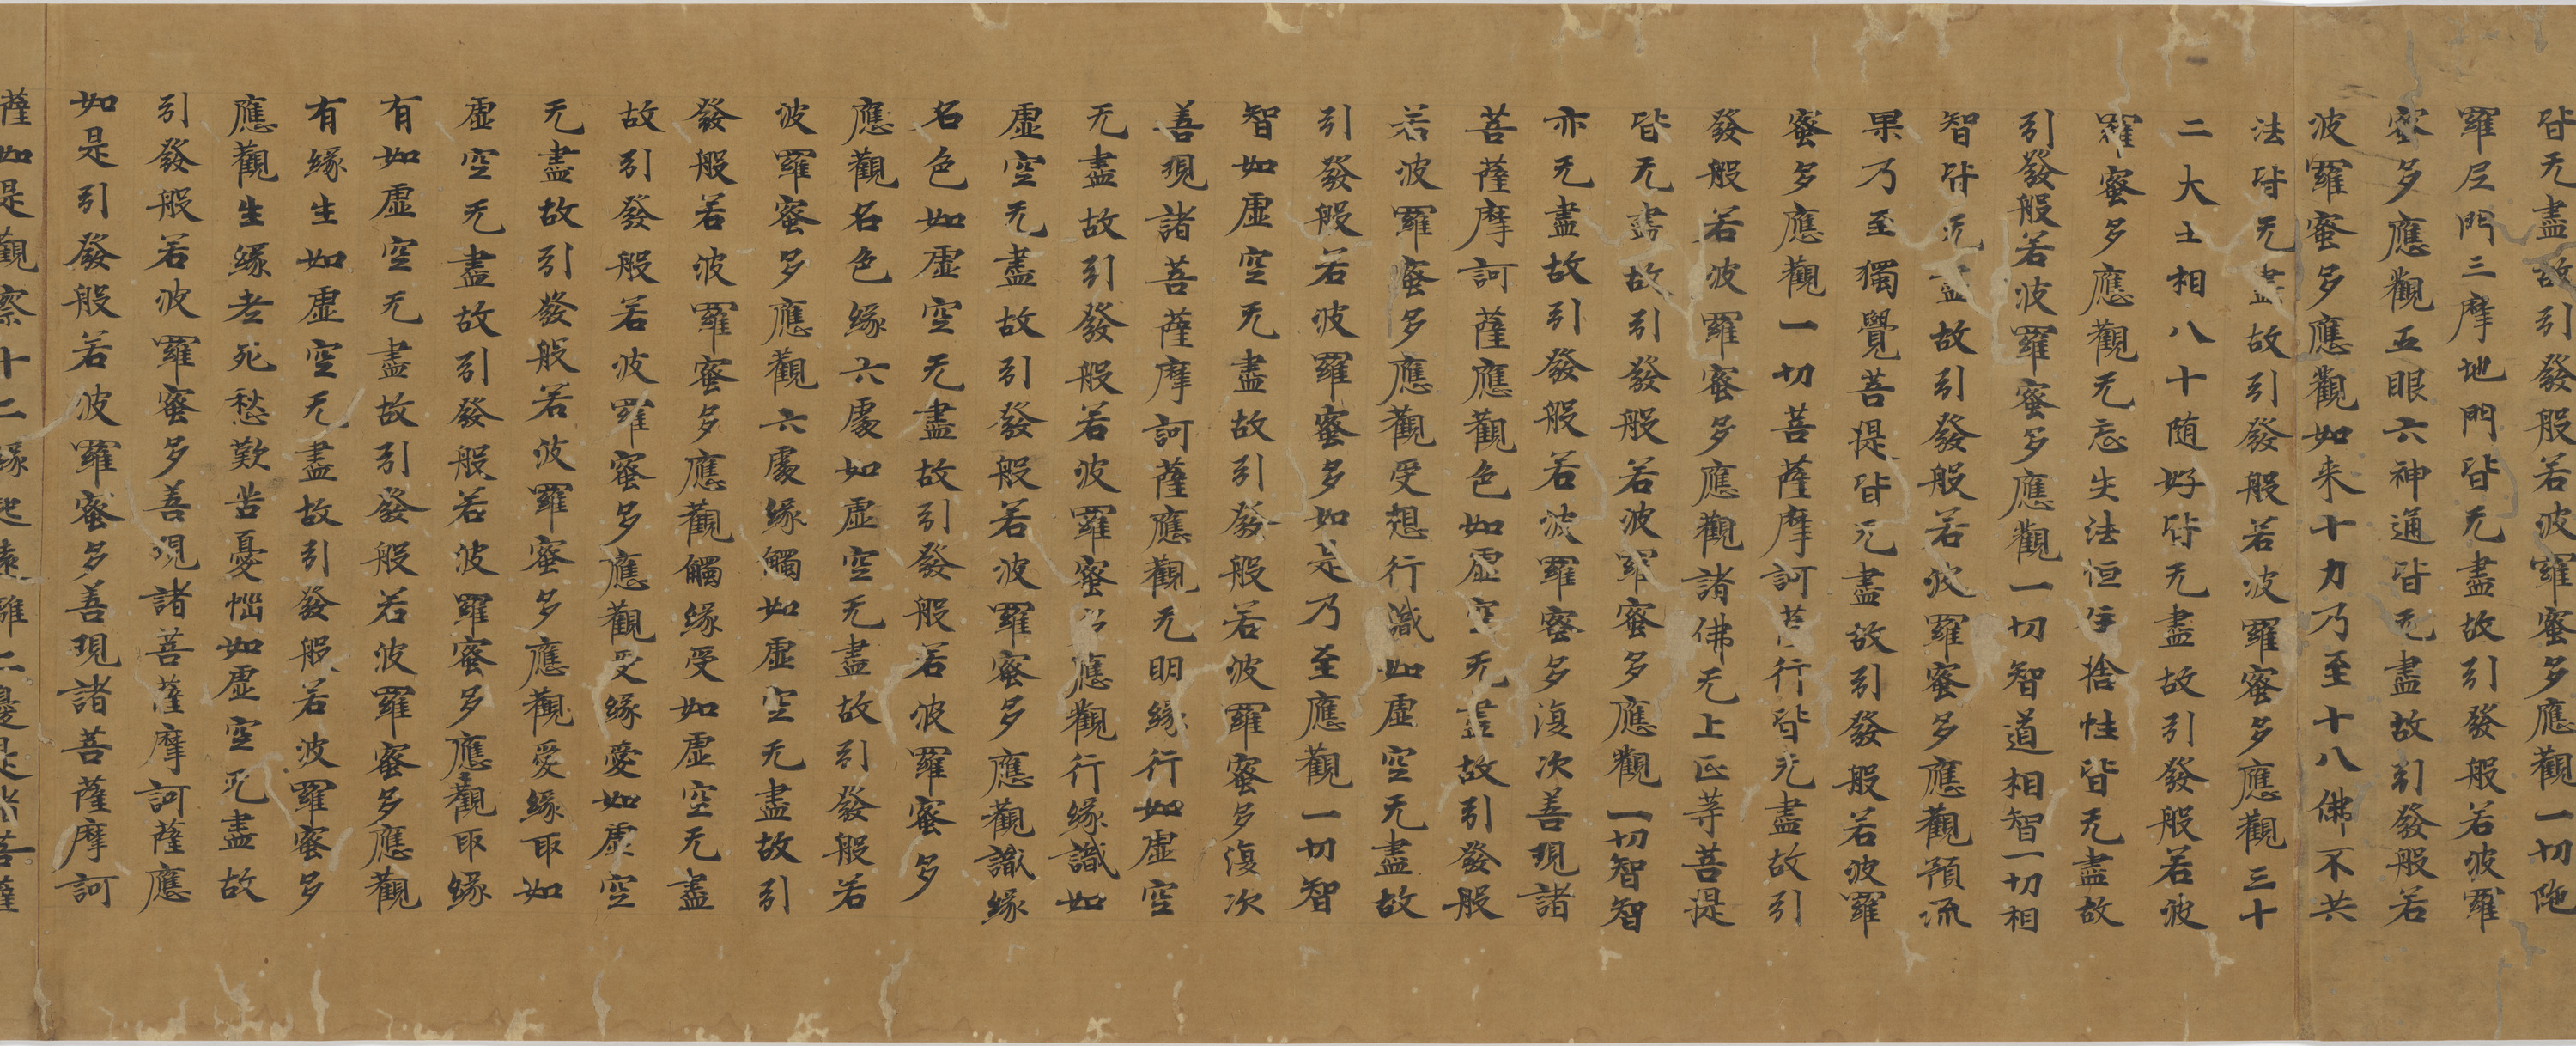 皆无盡故引發般若波羅蜜多應觀一切陁
羅尼門三摩地門皆无盡故引發般若波羅
蜜多應觀五眼六神通皆无盡故引發般若
波羅蜜多應觀如来十力乃至十八佛不共
法皆无盡故引發般若波羅蜜多應觀三十
二大士相八十随好皆无盡故引發般若波
羅蜜多應觀无忘失法恒住捨性皆无盡故
引發般若波羅蜜多應觀一切智道相智一切相
智皆无盡故引發般若波羅蜜多應觀預流
果乃至獨覺菩提皆无盡故引發般若波羅
蜜多應觀一切菩薩摩訶薩行皆无盡故引
發般若波羅蜜多應觀諸佛无上正等菩提
皆无盡故引發般若波羅蜜多應觀一切智智
亦无盡故引發般若波羅蜜多復次善現諸
菩薩摩訶薩應觀色如虛空无盡故引發般
若波羅蜜多應觀受想行識如虛空无盡故
引發般若波羅蜜多如是乃至應觀一切智
智如虛空无盡故引發般若波羅蜜多復次
善現諸菩薩摩訶薩應觀无明緣行如虛空
无盡故引發般若波羅蜜多應觀行緣識如
虛空无盡故引發般若波羅蜜多應觀識緣
名色如虛空无盡故引發般若波羅蜜多
應觀名色緣六處如虛空无盡故引發般若
波羅蜜多應觀六處緣觸如虛空无盡故引
發般若波羅蜜多應觀觸緣受如虛空无盡
故引發般若波羅蜜多應觀受緣愛如虛空
无盡故引發般若波羅蜜多應觀愛緣取如
虛空无盡故引發般若波羅蜜多應觀取緣
有如虛空无盡故引發般若波羅蜜多應觀
有緣生如虛空无盡故引發般若波羅蜜多
應觀生緣老死愁歎苦憂惱如虛空无盡故
引發般若波羅蜜多善現諸菩薩摩訶薩應
如是引發般若波羅蜜多善現諸菩薩摩訶
薩如是觀察十二緣起遠離二邊是諸菩薩